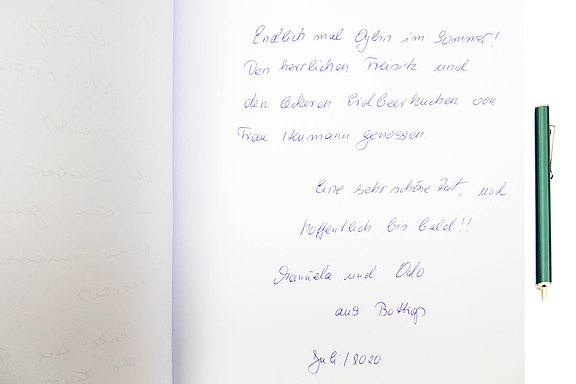 Endlich mal Oybin im Sommer!
Den herrlichen Freisitz und
den leckeren Erdbeerkuchen von
Frau Neumann genossen.
Eine sehr schöne Zeit, und
hoffentlich bis bald!!
Manuela und Odo
aus
Juli/2020